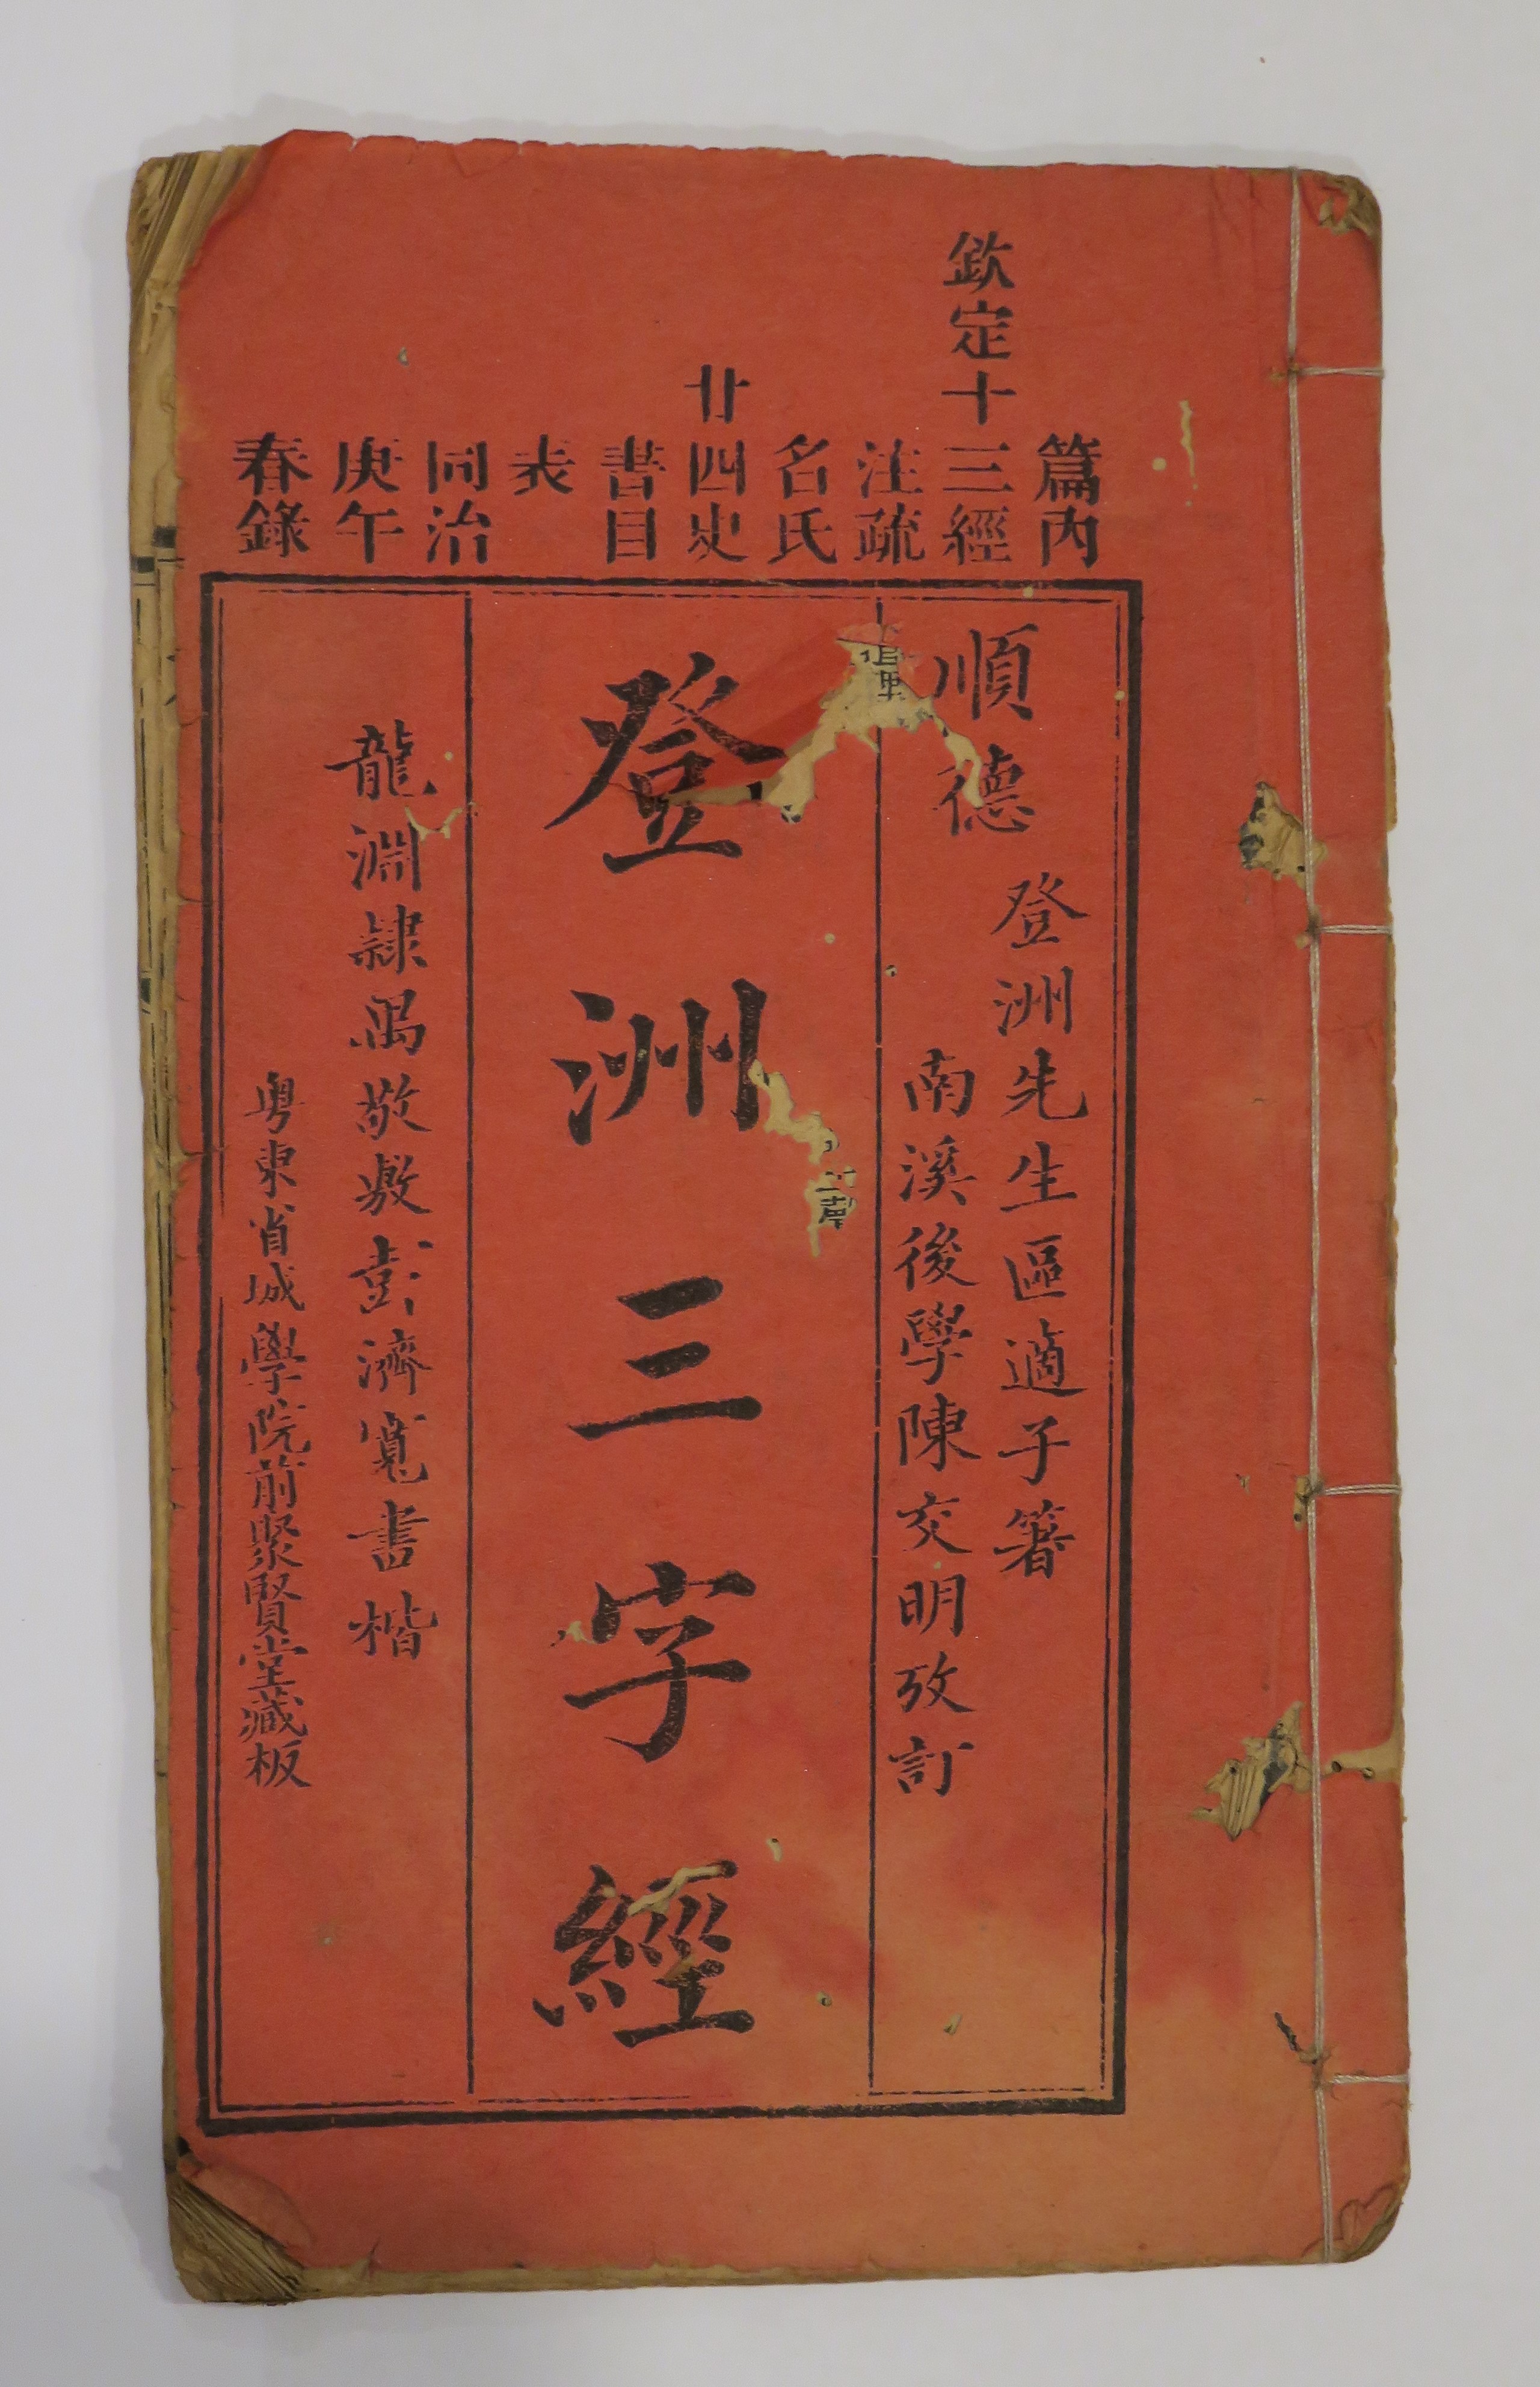 篇內
欽定十三經
注疏
名氏
廿四史
書目
表
同治
庚午
春錄
順德
登洲先生區適子箸
南溪後學陳交明攷訂
登洲三字經
龍淵隸禺敬敷彭濟寬書楷
粤東省城學院前聚賢堂藏板